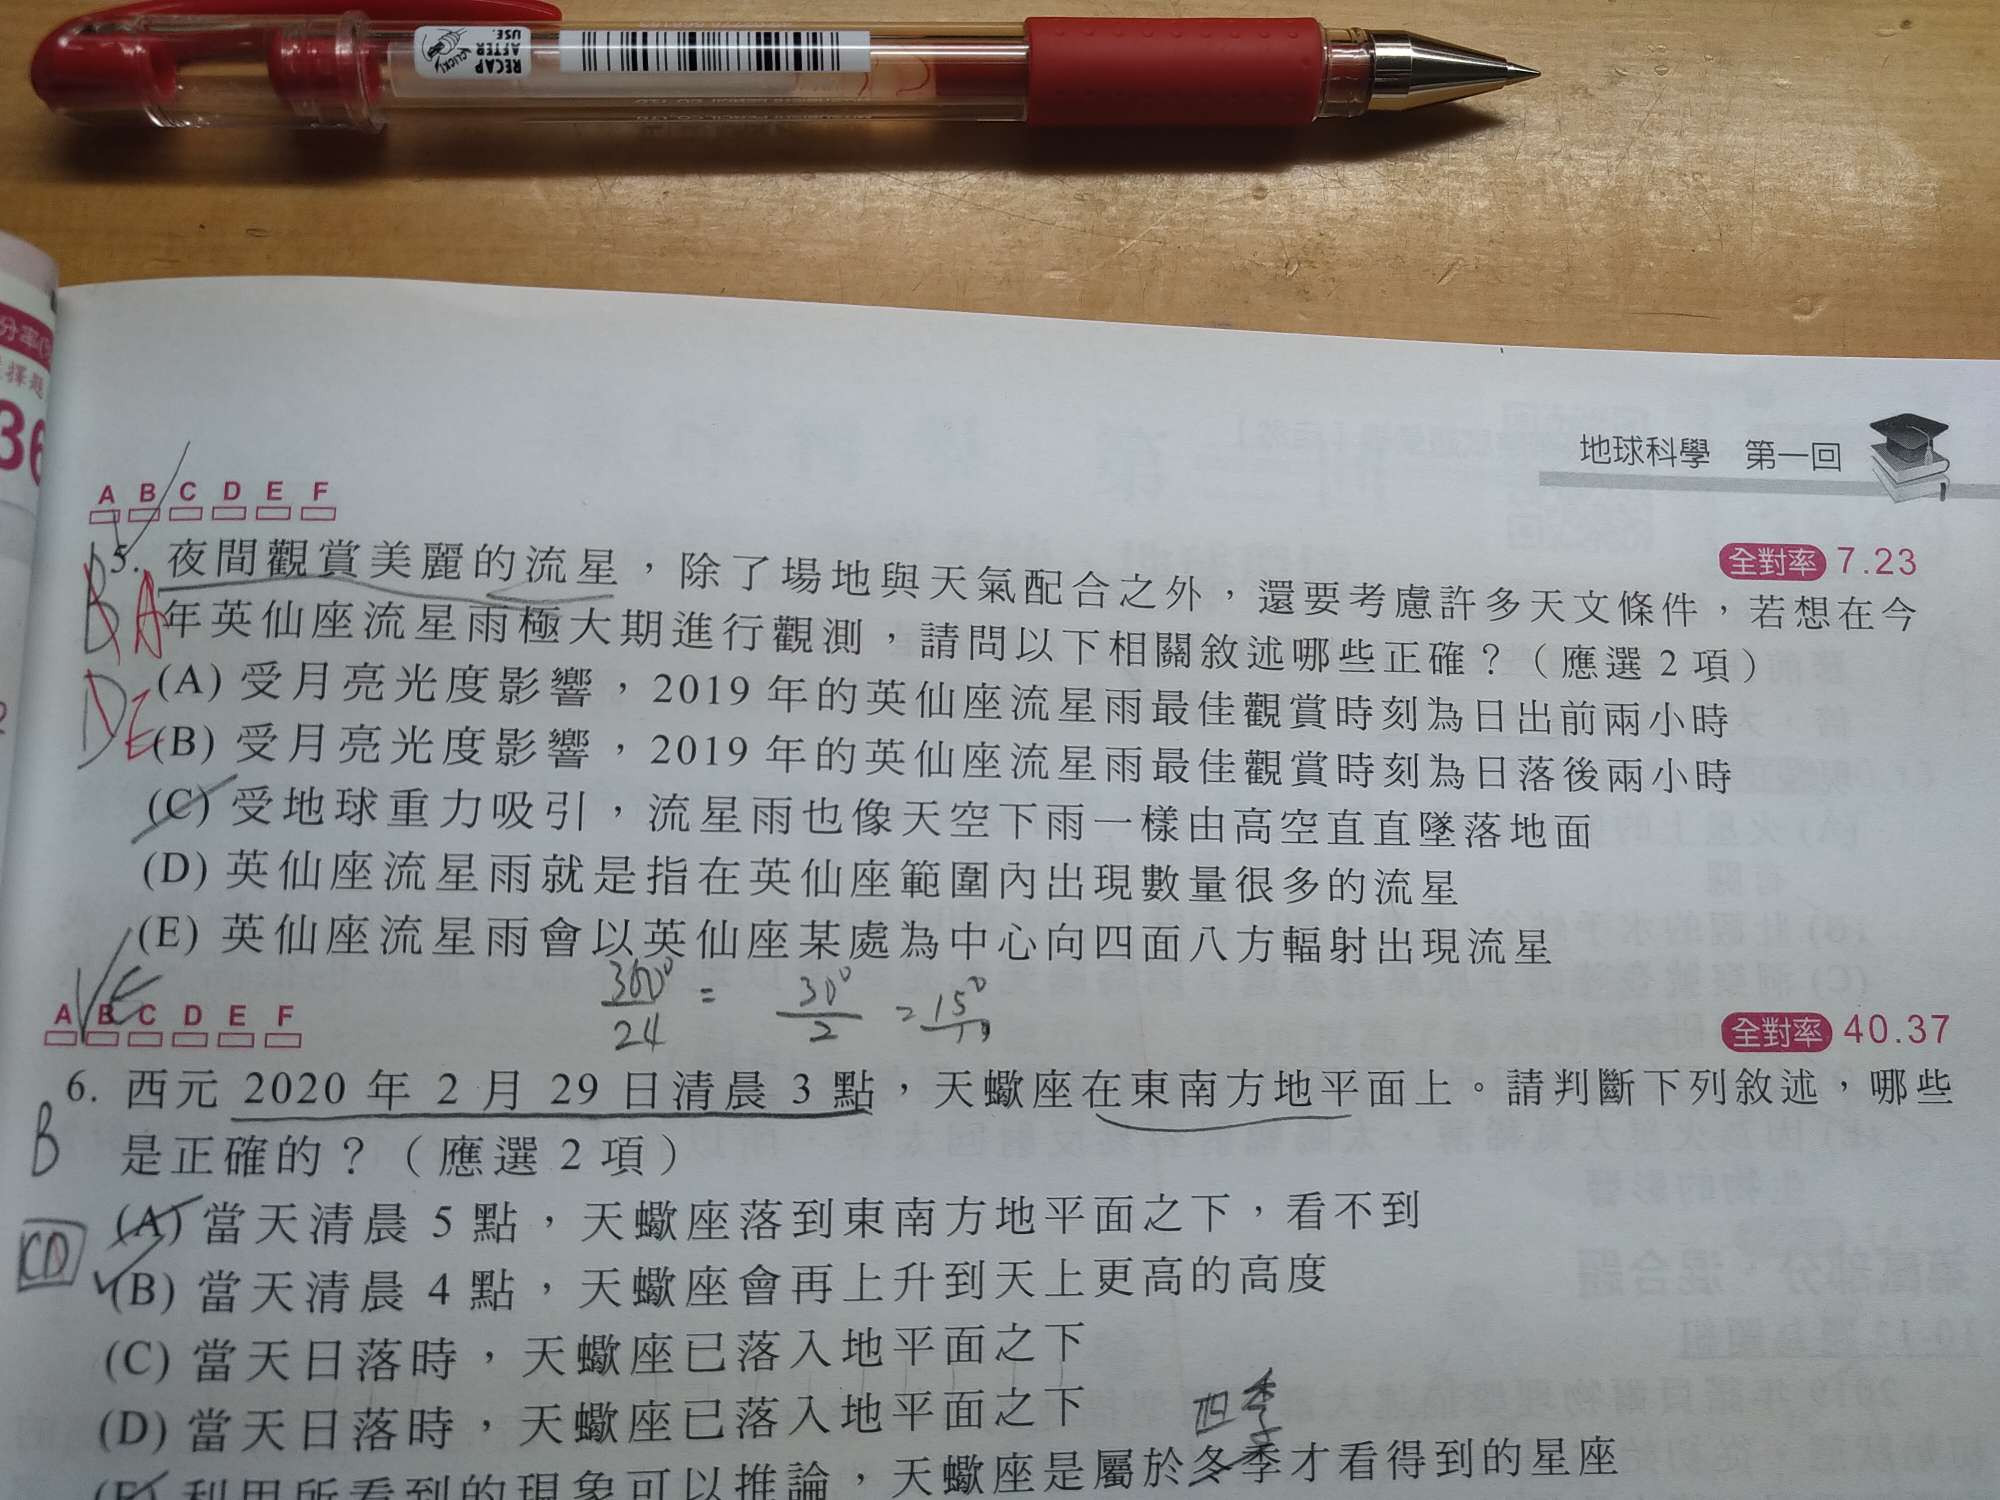 RECAP
AFTER
USE.
CLICK!
分率
擇題
36
地球科學 第一回
A B C D E F
全對率 7.23
5. 夜間觀賞美麗的流星,除了場地與天氣配合之外,還要考慮許多天文條件,若想在今
年英仙座流星雨極大期進行觀測,請問以下相關敘述哪些正確?(應選 2 項)
A
DE
(A) 受月亮光度影響,2019 年的英仙座流星雨最佳觀賞時刻為日出前兩小時
(B) 受月亮光度影響,2019 年的英仙座流星雨最佳觀賞時刻為日落後兩小時
(C) 受地球重力吸引,流星雨也像天空下雨一樣由高空直直墜落地面
(D) 英仙座流星雨就是指在英仙座範圍內出現數量很多的流星
(E) 英仙座流星雨會以英仙座某處為中心向四面八方輻射出現流星
360°/24 = 30°/2 = 15°
E
A B C D E F
全對率 40.37
6. 西元 2020 年 2 月 29 日清晨 3 點,天蠍座在東南方地平面上。請判斷下列敘述,哪些
是正確的?(應選 2 項)
B
CD
(A) 當天清晨 5 點,天蠍座落到東南方地平面之下,看不到
(B) 當天清晨 4 點,天蠍座會再上升到天上更高的高度
(C) 當天日落時,天蠍座已落入地平面之下
(D) 當天日落時,天蠍座已落入地平面之下
四季
(E) 利用所看到的現象可以推論,天蠍座是屬於冬季才看得到的星座